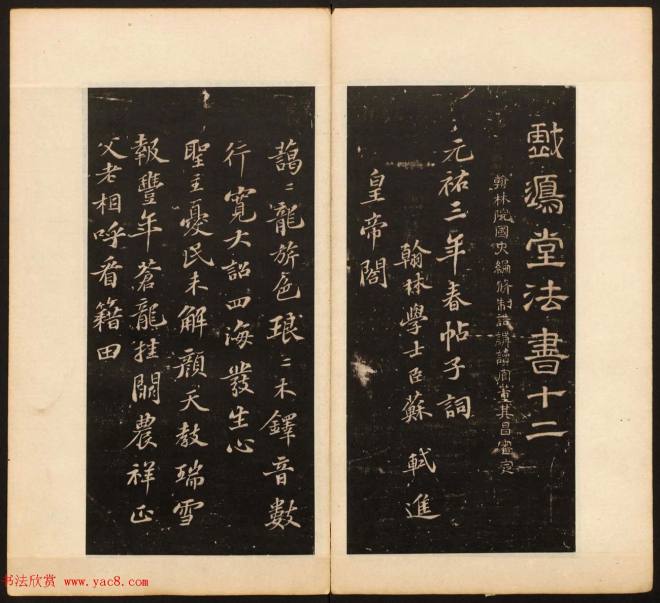 戲鴻堂法書十二
翰林院國史編修制誥講讀官董其昌審定
元祐三年春帖子詞
翰林學士臣蘇軾進
皇帝閣
藹〻龍旂色琅〻木鐸音數
行寬大詔四海發生心
聖主憂民未解顏天教瑞雪
報豐年蒼龍挂闕農祥正
父老相呼看籍田
书法欣赏 www.yac8.com